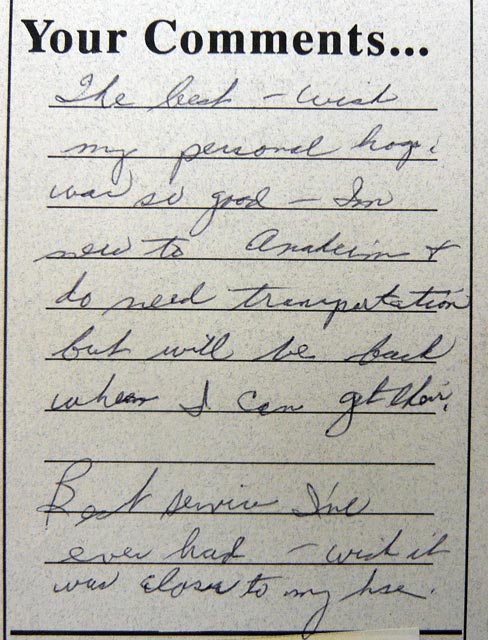 Your Comments...
The best – wish
my personal hosp.
was so good – I'm
new to Anaheim &
do need transportation
but will be back
when I can get their.
Best service I've
ever had – wish it
was closer to my hse.